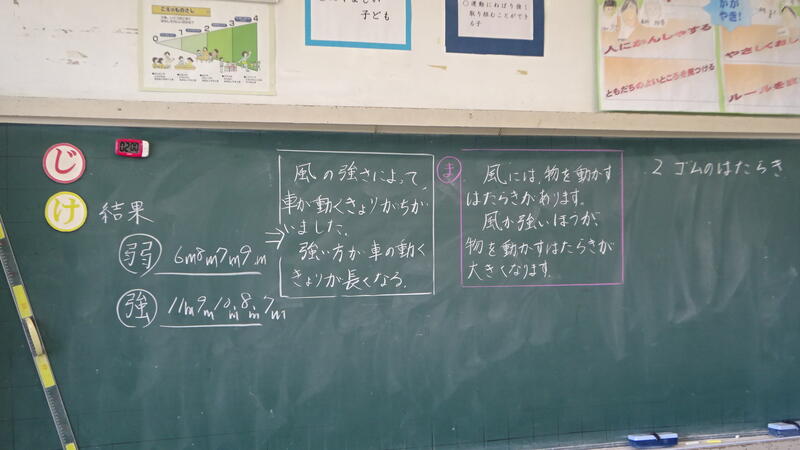 こえのものさし
0 1 2 3 4
子ども
○運動にねばり強く
取り組むことができ
る子
かが
やき!
人にかんしゃする
ともだちのよいところを見つける
やさしくおし
ルールを
じ
け
結果
弱 6m8m7m9m
強 11m9m10m8m7m
風の強さによって、
車が動くきょりがちが
いました。
強い方が車の動く
きょりが長くなる。
ま
風には、物を動かす
はたらきがあります。
風が強いほうが、
物を動かすはたらきが
大きくなります。
2 ゴムのはたらき